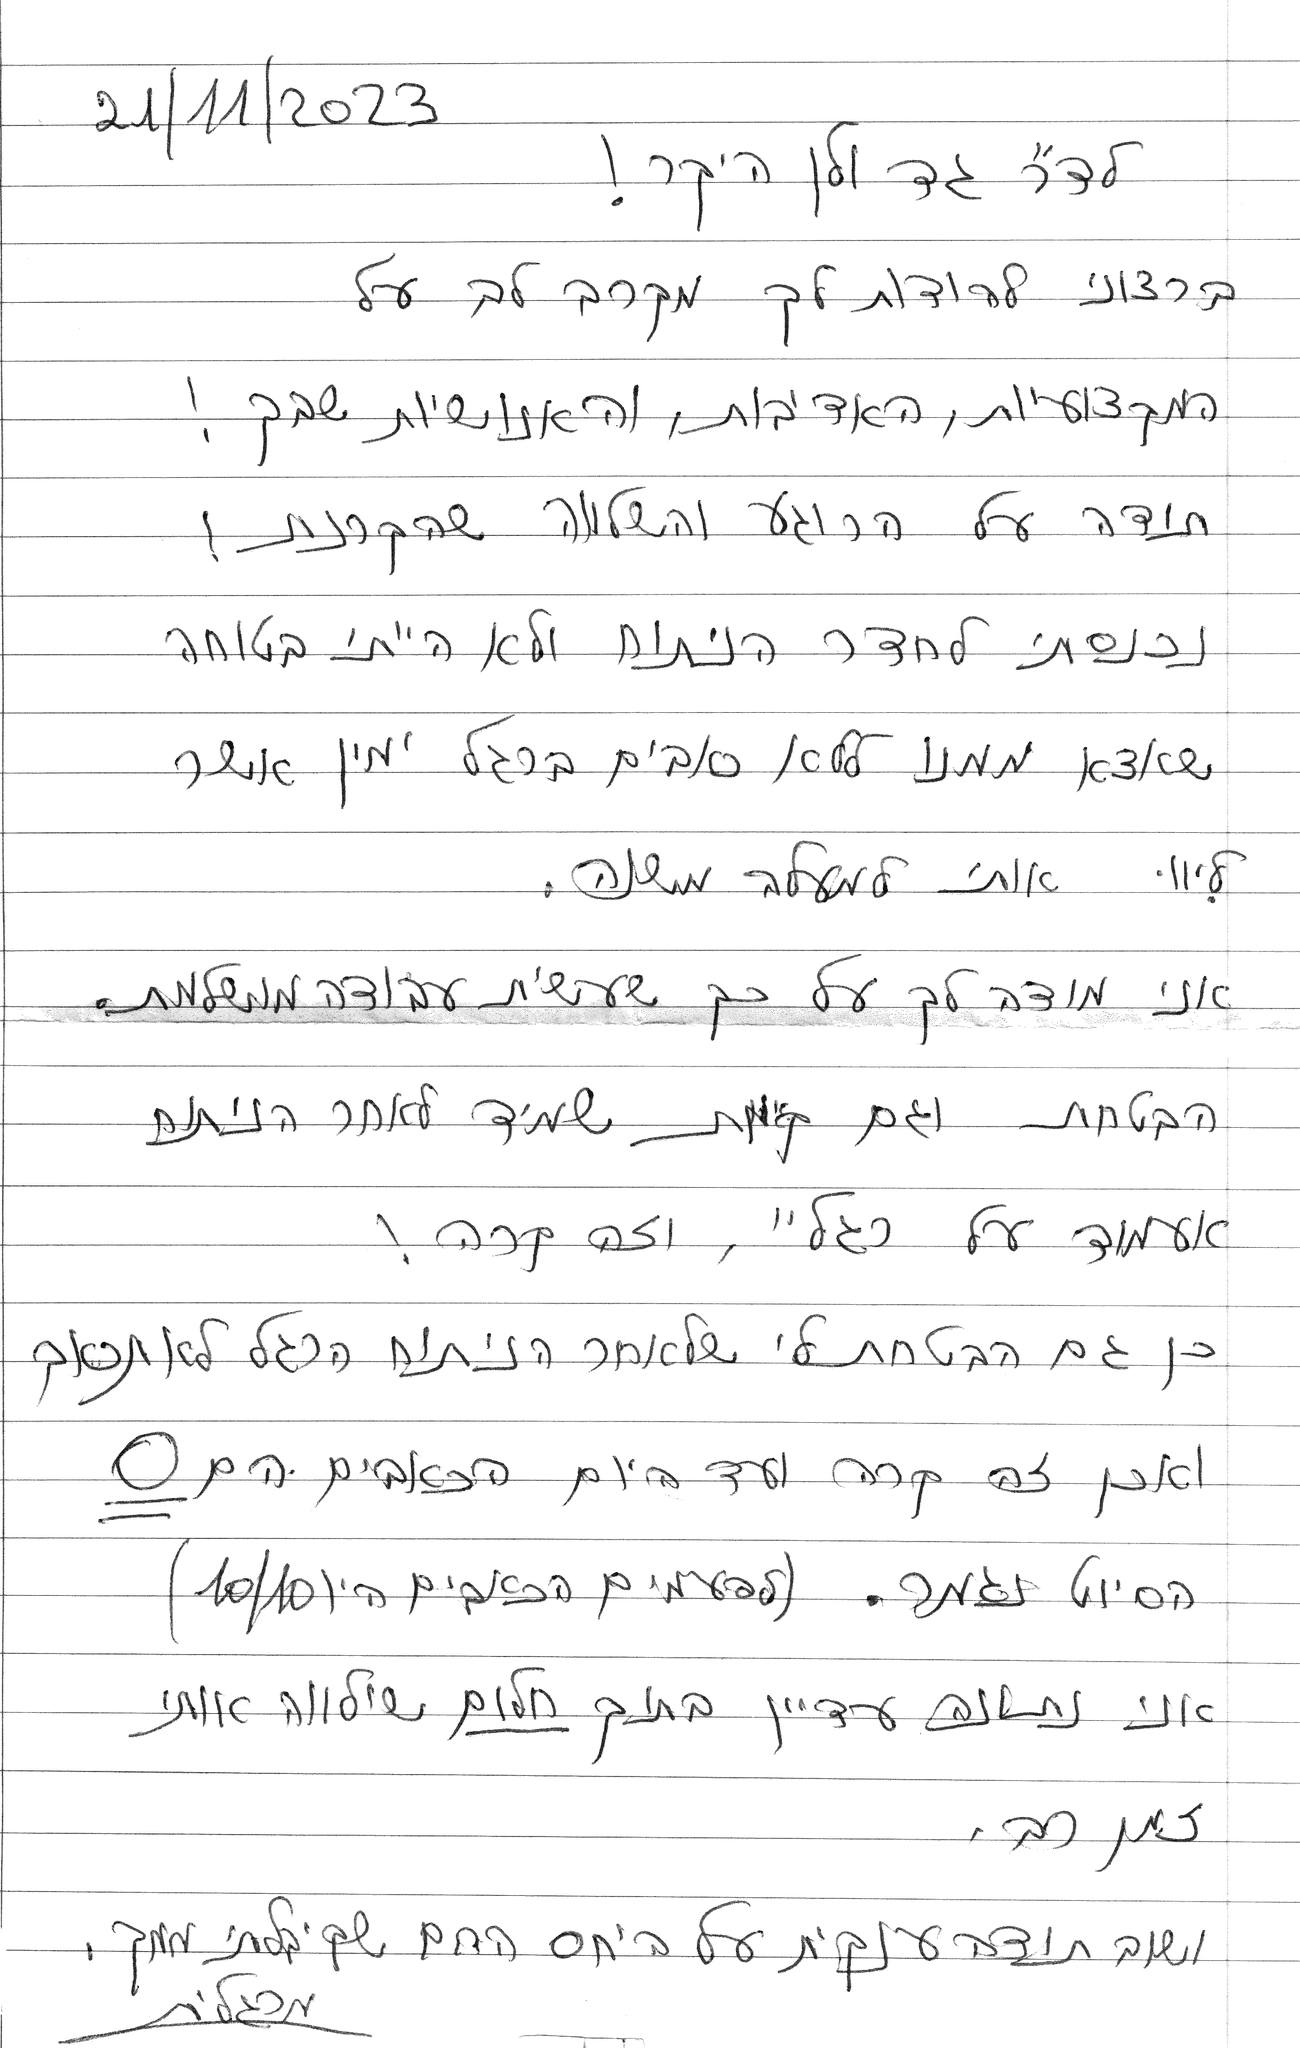 21/11/2023
לד״ר גד ולן היקר!
ברצוני להודות לך מקרב לב על
המקצועיות, האדיבות, והאנושיות שבך!
תודה על הרוגע והשלווה שהקרנת!
נכנסתי לחדר הניתוח ולא הייתי בטוחה
שאצא ממנו ללא כאבים ברגל ימין אשר
ליווי אותי למעלה משנה.
אני מודה לך על כך שעשית עבודה מושלמת.
הבטחת וגם קיימת שמיד לאחר הניתוח
אעמוד על רגליי, וזה קרה!
כן גם הבטחת לי שלאחר הניתוח הרגל לא תכאב
ואכן זה קרה ועד היום הכאבים הם 0
הסיוט נגמר. (לפעמים הכאבים היו 10/10)
אני נמצאת עדיין בתוך חלום שילווה אותי
זמן רב.
ושוב תודה ענקית על היחס החם שקיבלתי ממך.
מרגלית